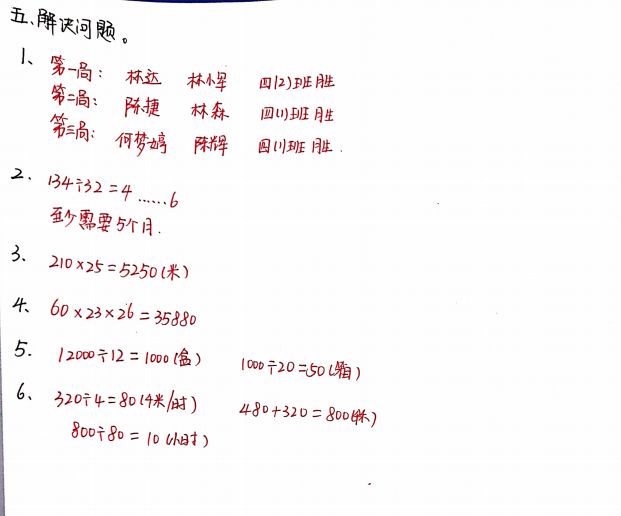 五、解决问题。
1、第一局: 林达 林小军 四(2)班胜
第二局: 陈捷 林森 四(1)班胜
第三局: 何梦婷 陈辉 四(1)班胜.
2. 134÷32=4……6
至少需要5个月.
3、 210×25=5250(米)
4、 60×23×26=35880
5. 12000÷12=1000(盒) 1000÷20=50(箱)
6、 320÷4=80(千米/时) 480+320=800(千米)
800÷80=10(小时)